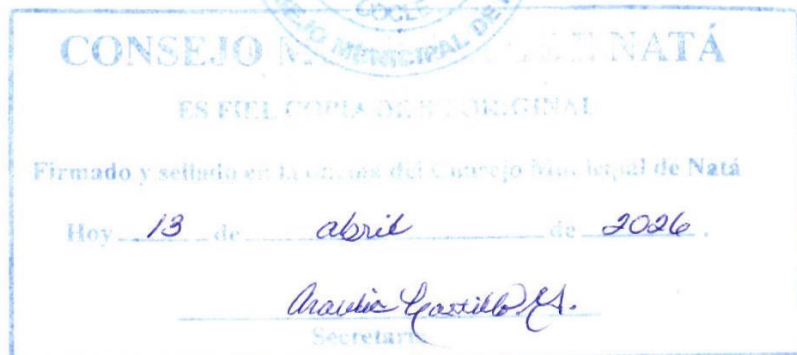 COCLE
CONSEJO MUNICIPAL DE NATÁ
ES FIEL COPIA DE SU ORIGINAL
Firmado y sellado en la oficina del Consejo Municipal de Natá
Hoy 13 de abril de 2026.
Castillo
Secretaria